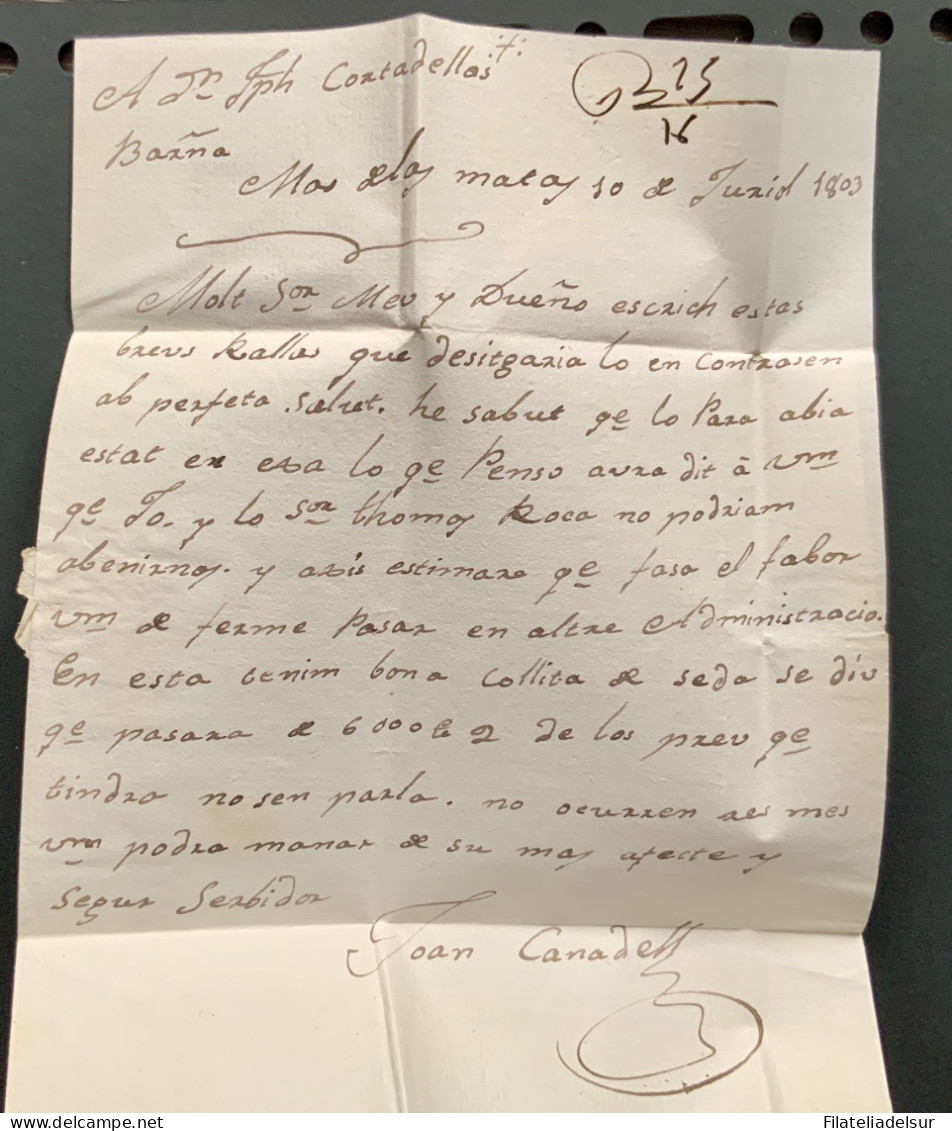 A Dn. Jph Cortadellas
R 25
16
Barña
Mas de las matas 10 de Juriol 1803
Molt Sor. Meu y Dueño escrich estas
breus Rallas que desitgaria lo en Contrasen
ab perfeta salut. he sabut qe lo Para abia
estat en exa lo qe Penso aura dit â Vm
qe Jo. y lo Sor. thomas Roca no podriam
abenirnos. y axis estimare qe fasa el fabor
Vm de ferme Pasar en altre Administracio.
En esta tenim bona Collita de seda se diu
qe pasara de 6000 de los preu qe
tindra no sen parla. no ocurren res mes
Vm podra manar de su mas afecte y
segur Serbidor
Joan Canadell
Filateliadelsur